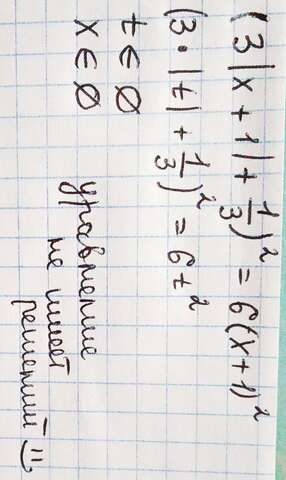 (3|x+1|+1/3)² = 6(x+1)²
(3·|t|+1/3)² = 6t²
t∈∅
x∈∅
уравнение
не имеет
решений =)